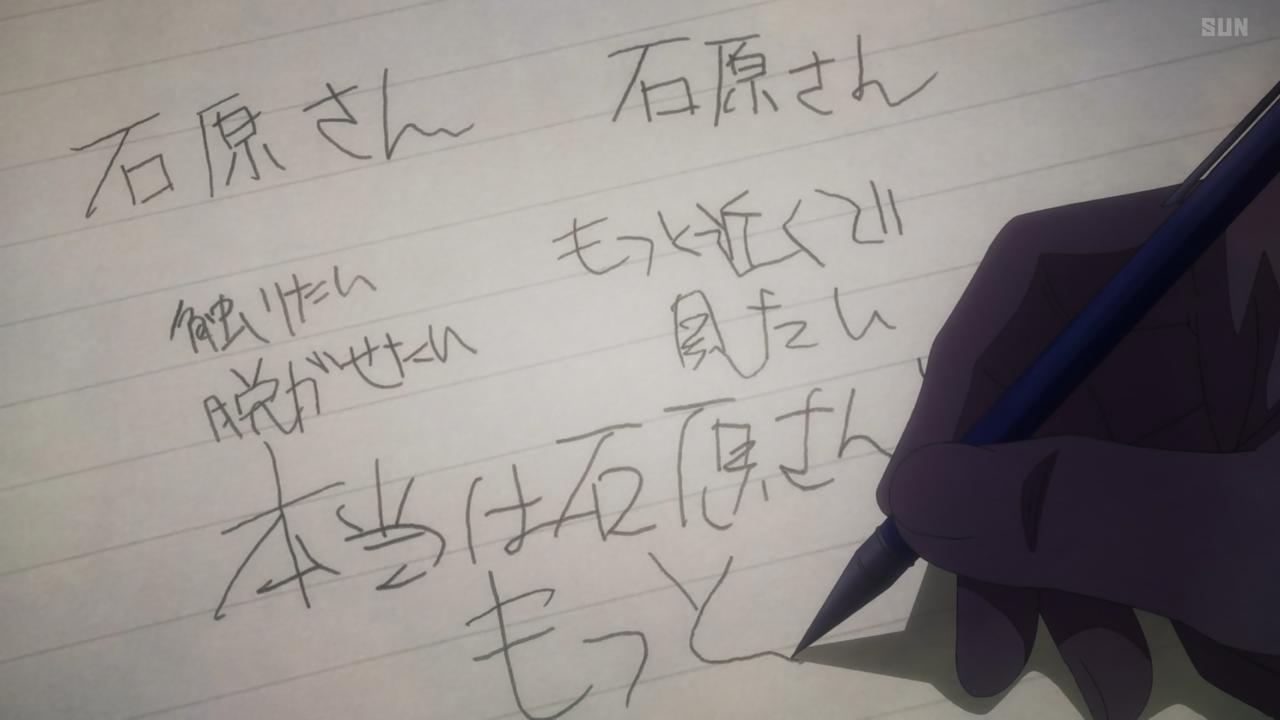 SUN
石原さん
石原さん
触りたい
脱がせたい
もっと近くで
見たい
本当は石原さん
もっと